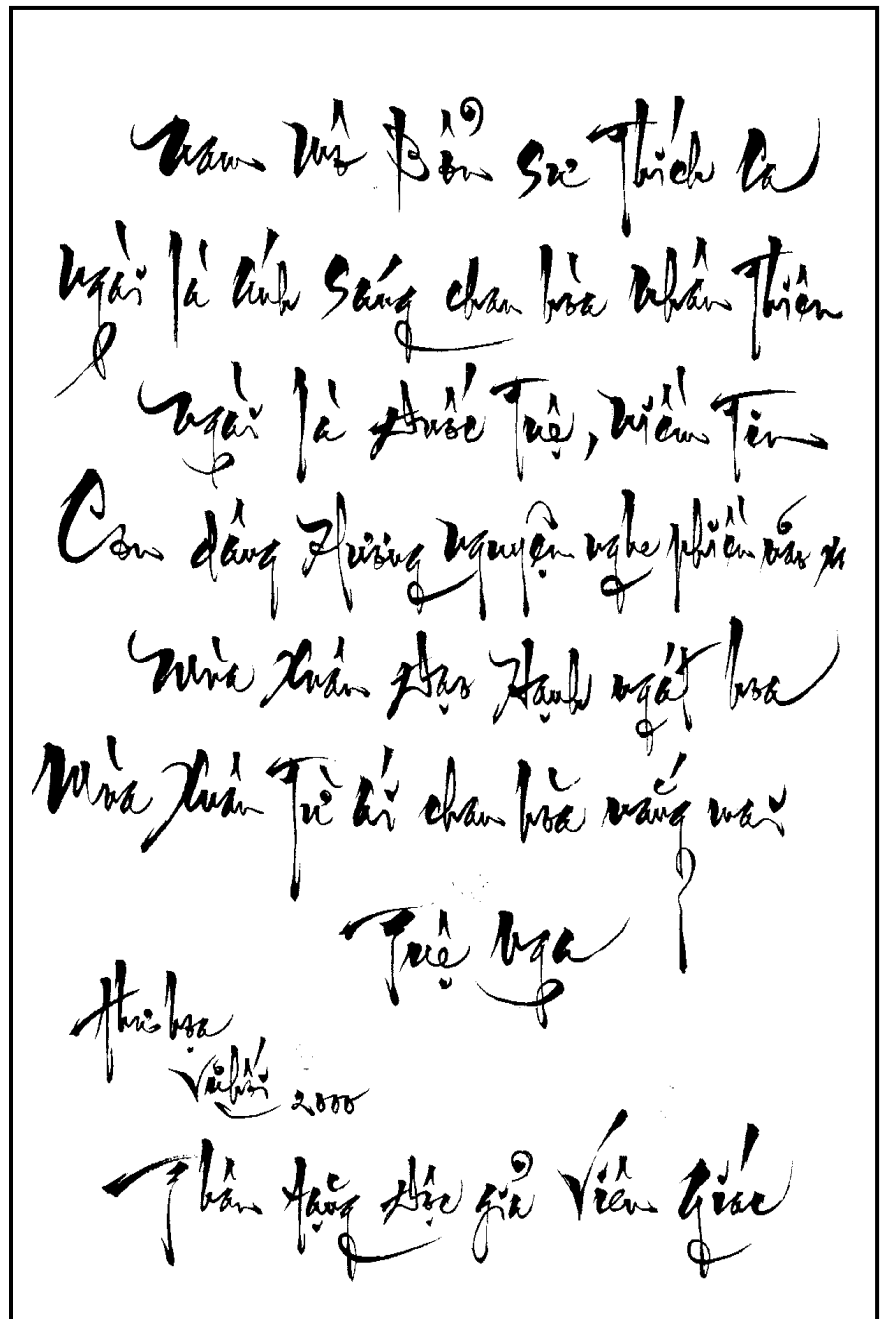 Nam Mô Bổn Sư Thích Ca
Ngài là ánh sáng chan hòa Nhân Thiên
Ngài là đuốc Tuệ, Niềm Tin
Con dâng Hương nguyện nghe phiền não
Mùa Xuân Đạo Hạnh ngát hoa
Mùa Xuân Từ ái chan hòa nắng mai
Tuệ Nga
Thư họa
Vũ Hối 2000
Thân tặng độc giả Viên Giác